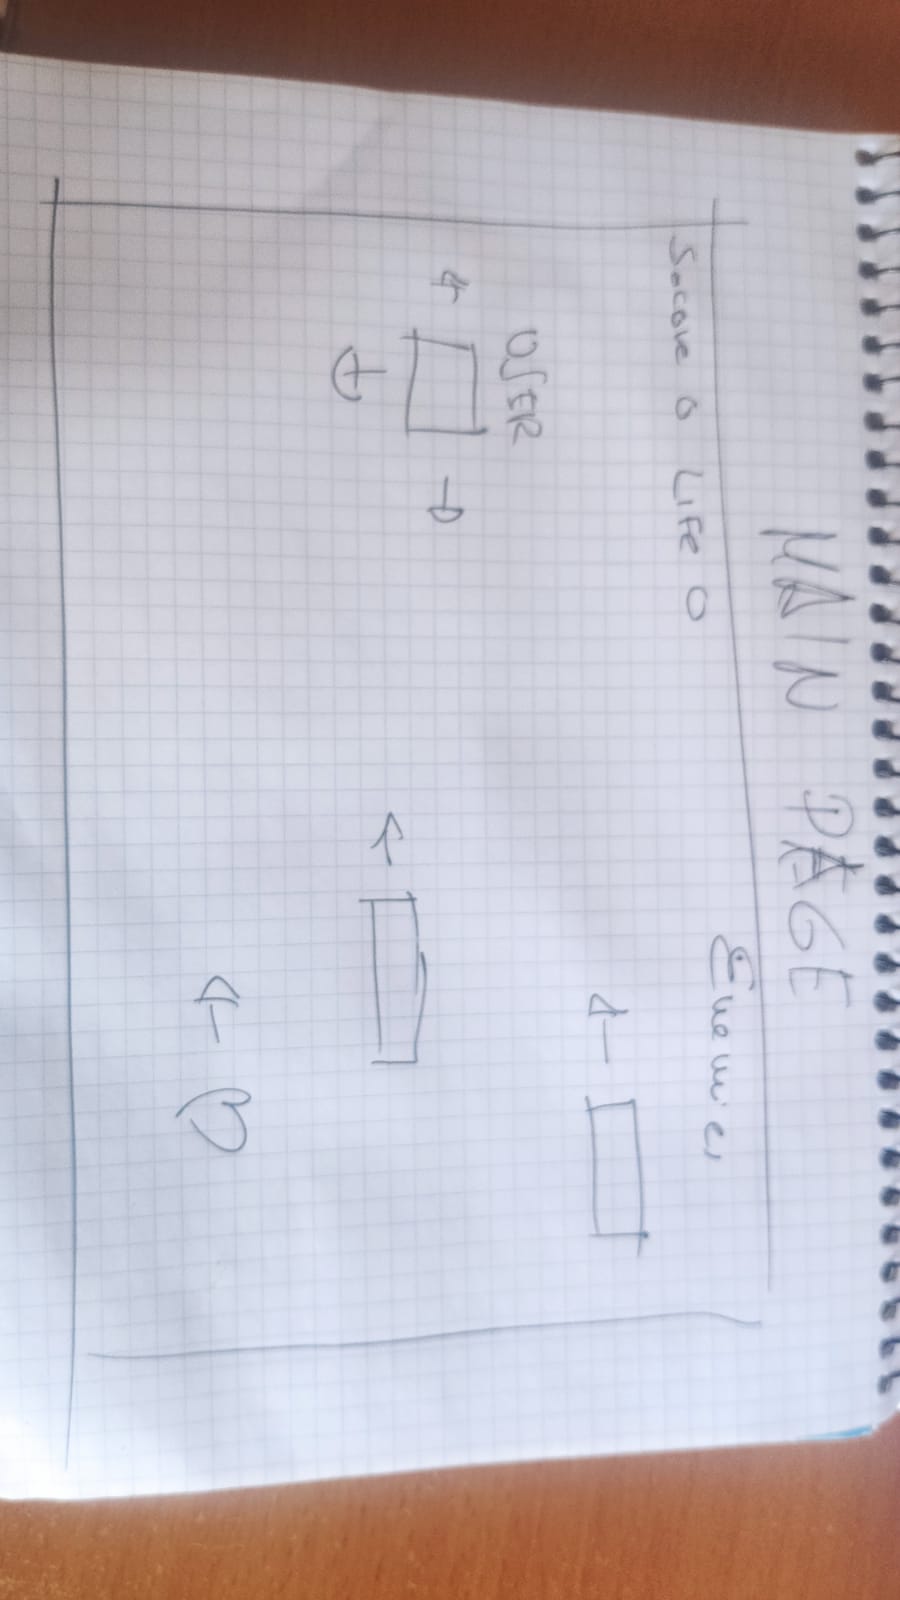 MAIN PAGE
Socore 0 LIFE 0
Enemies
USER